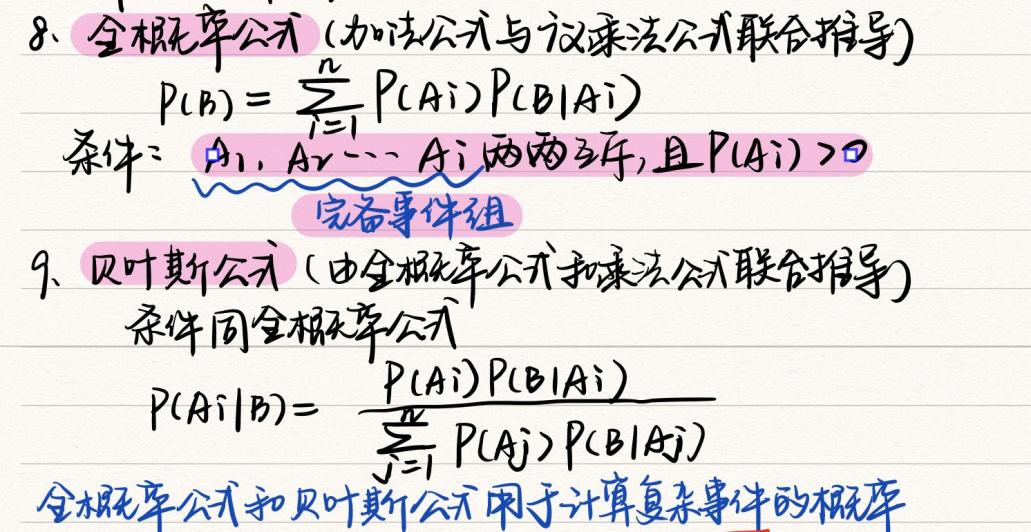 8、全概率公式(加法公式与议乘法公式联合推导)
P(B) = ∑_{i=1}^{n} P(Ai)P(B|Ai)
条件：A1、A2 ---- Ai 两两互斥,且P(Ai)>0
完备事件组
9、贝叶斯公式(由全概率公式和乘法公式联合推导)
条件同全概率公式
P(Ai|B) = P(Ai)P(B|Ai) / ∑_{j=1}^{n} P(Aj)P(B|Aj)
全概率公式和贝叶斯公式用于计算复杂事件的概率